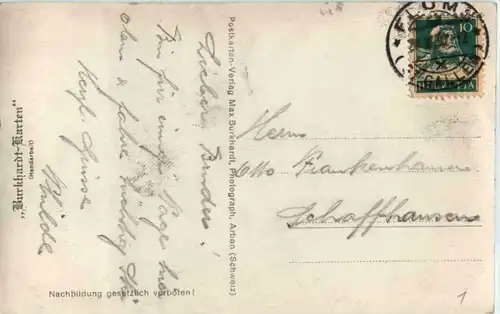 „Burkhardt-Karten"
(Handarbeit)
Lieber Bruder!
Bin für einige Tage hier
oben & fahre tüchtig Ski
Herzl. Grüsse
Nachbildung gesetzlich verboten!
Postkarten-Verlag Max Burkhardt, Photograph, Arbon (Schweiz)
FLUMS
(ST. GALLEN)
10
HELVETIA
Herrn
Otto Frankenhauser
Schaffhausen
1